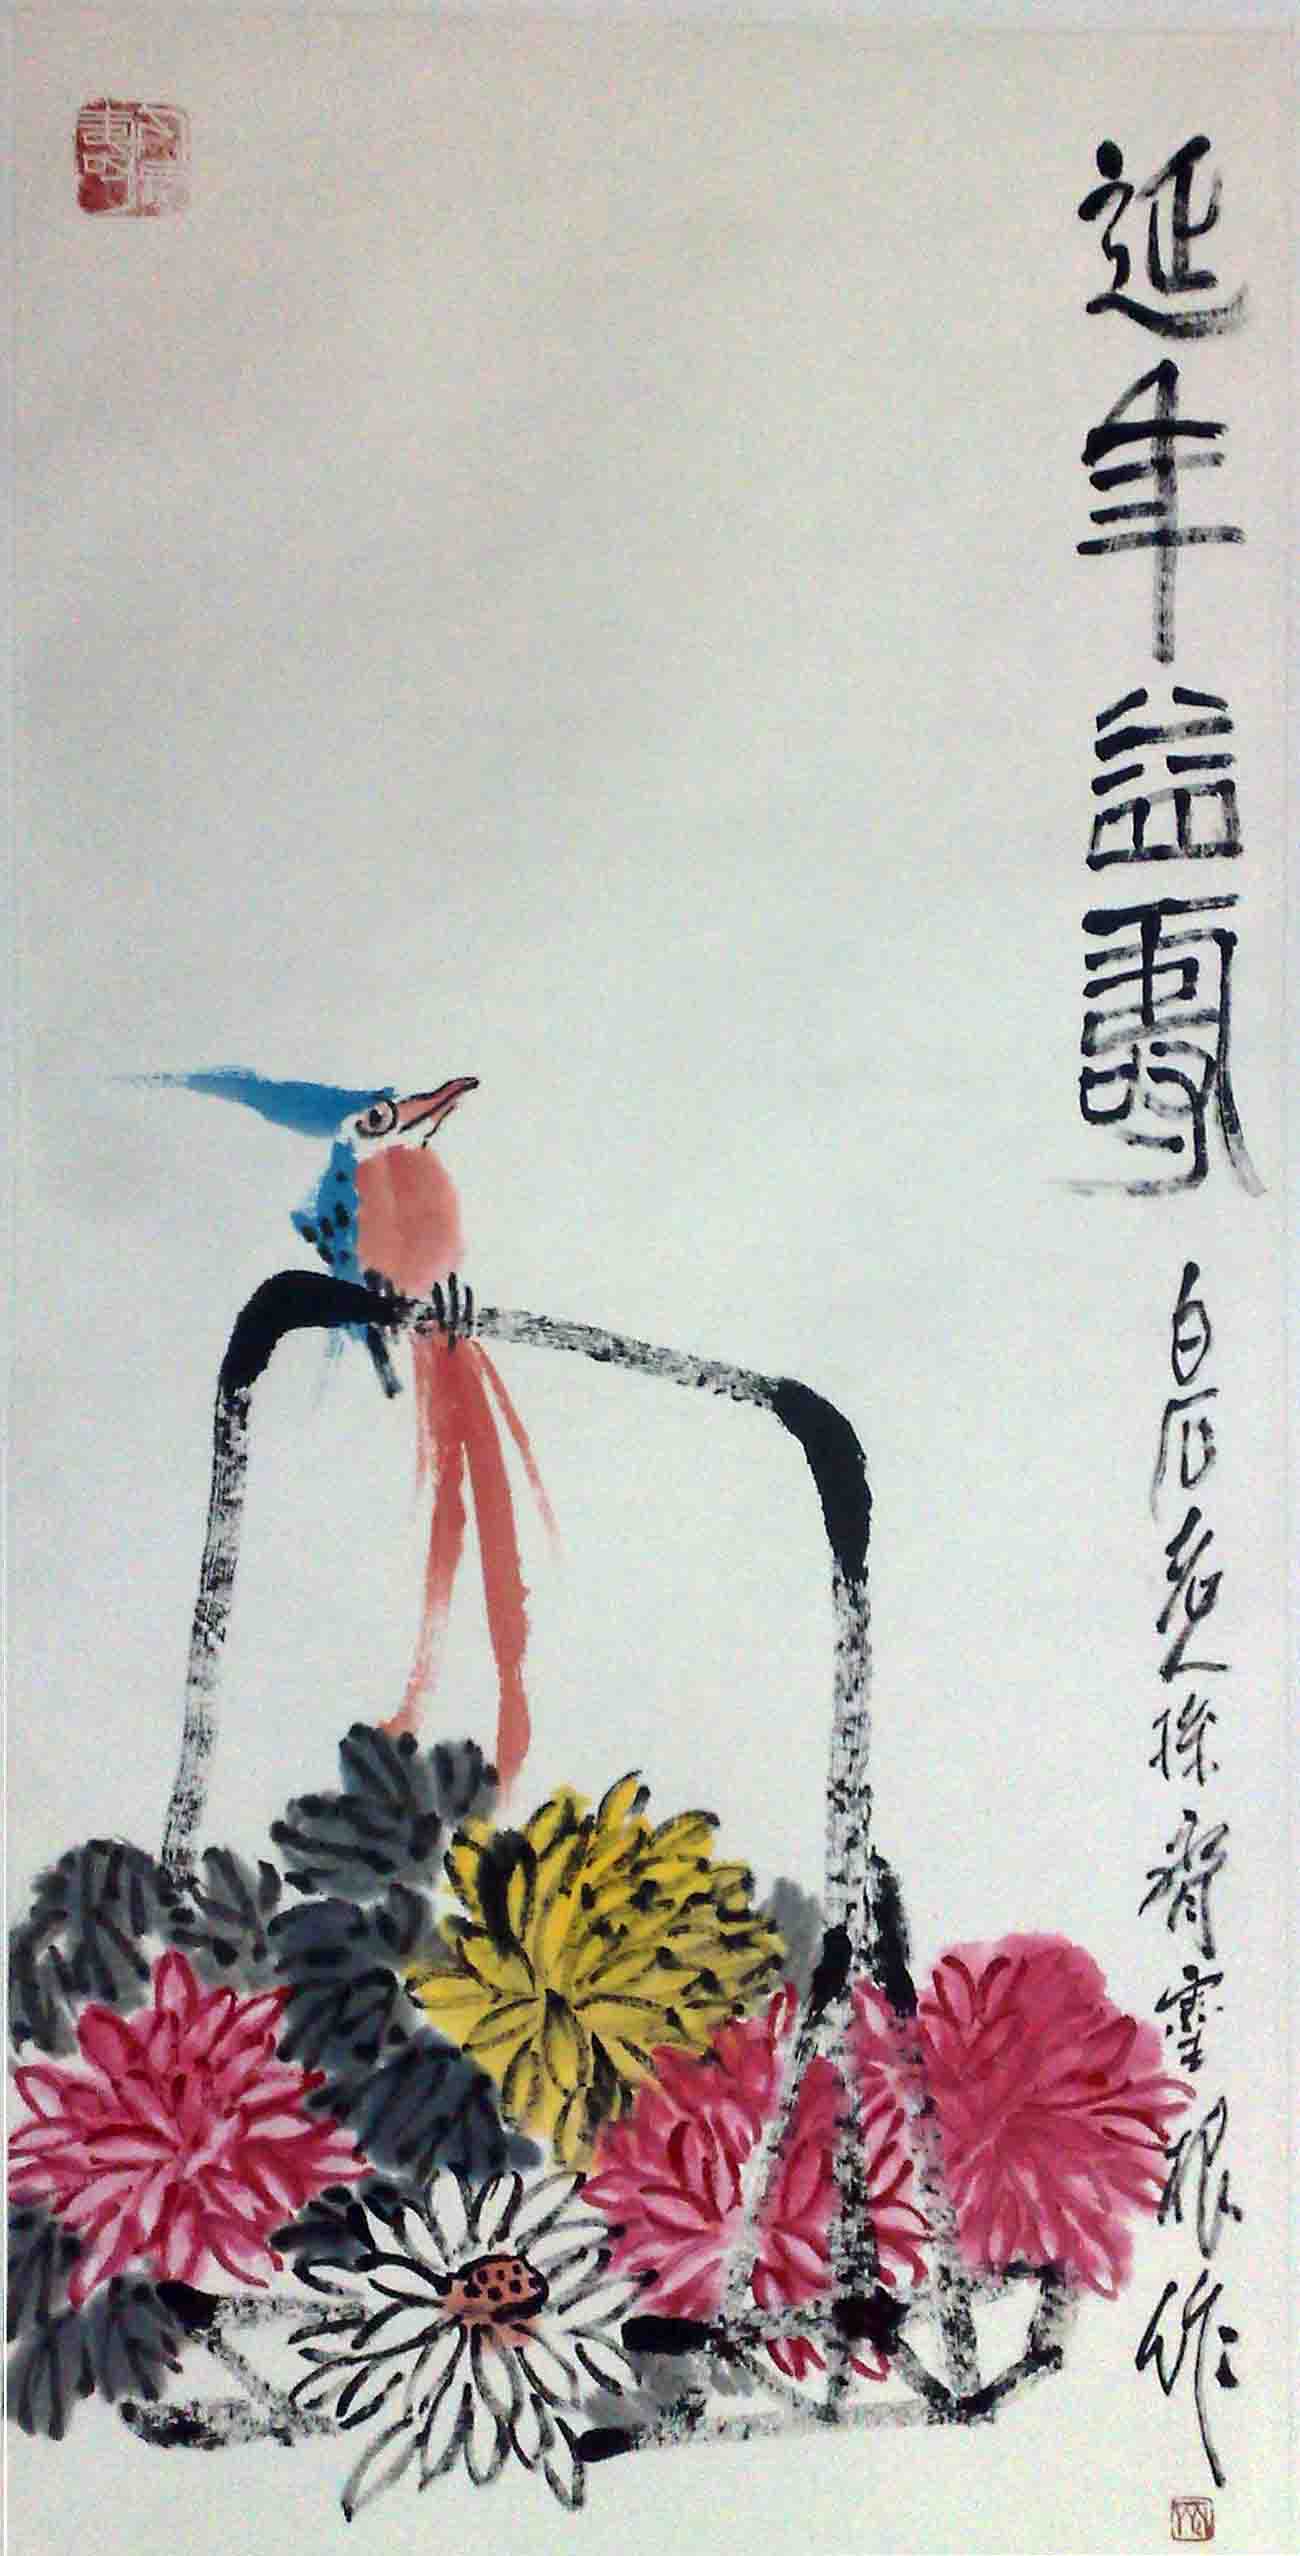 延年益壽
白石老人孫齊靈根作